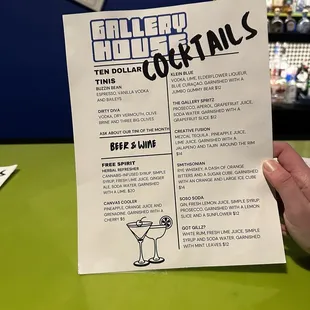 GALLERY
HOUSE
COCKTAILS
TEN DOLLAR
TINIS
BUZZIN BEAN
ESPRESSO, VANILLA VODKA
AND BAILEYS
DIRTY DIVA
VODKA, DRY VERMOUTH, OLIVE
BRINE AND THREE BIG OLIVES
ASK ABOUT OUR TINI OF THE MONTH
BEER & WINE
FREE SPIRIT
HERBAL REFRESHER
CANNABIS-INFUSED SYRUP, SIMPLE
SYRUP, FRESH LIME JUICE, GINGER
ALE, SODA WATER, GARNISHED
WITH A LIME. $20
CANVAS COOLER
PINEAPPLE, ORANGE JUICE, AND
GRENADINE, GARNISHED WITH A
CHERRY $8
KLEIN BLUE
VODKA, LIME, ELDERFLOWER LIQUEUR,
BLUE CURAÇAO, GARNISHED WITH A
JUMBO GUMMY BEAR $12
THE GALLERY SPRITZ
PROSECCO, APEROL, GRAPEFRUIT JUICE,
SODA WATER GARNISHED WITH A
GRAPEFRUIT SLICE $12
CREATIVE FUSION
MEZCAL, TEQUILA, PINEAPPLE JUICE,
LIME JUICE, GARNISHED WITH A
JALAPENO AND TAJIN AROUND THE RIM
$14
SMITHSONIAN
RYE WHISKEY, A DASH OF ORANGE
BITTERS AND A SUGAR CUBE, GARNISHED
WITH AN ORANGE AND LARGE ICE CUBE
$14
SOSO SODA
GIN, FRESH LEMON JUICE, SIMPLE SYRUP,
PROSECCO, GARNISHED WITH A LEMON
SLICE AND A SUNFLOWER $14
GOT GILLZ?
WHITE RUM, FRESH LIME JUICE, SIMPLE
SYRUP AND SODA WATER, GARNISHED
WITH MINT LEAVES $12